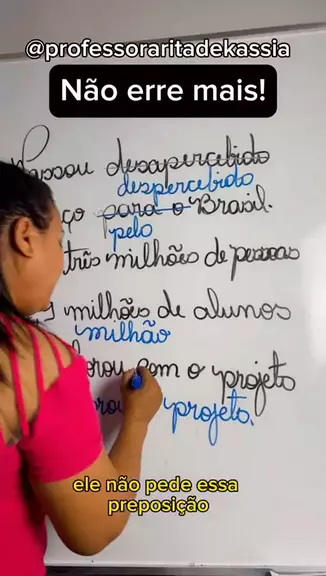 @professoraritadekassia
Não erre mais!
Passou desapercebido
despercebido
ço para o Brasil.
pelo
três milhões de pessoas
milhões de alunos
milhão
orou com o projeto
projeto.
ele não pede essa
preposição